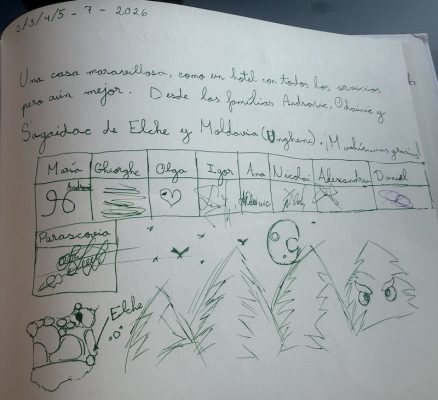 2/3/4/5 - 7 - 2026
Una casa maravillosa, como un hotel con todos los servicios
pero aún mejor. Desde las familias Andronic, y
Sagaidac de Elche y Moldavia (Ungheni). ¡Muchísimas gracias!
María Gheorghe Olga Igor Ana Nicolai Alessandru Daniel
Andronic
Parascovia
Elche